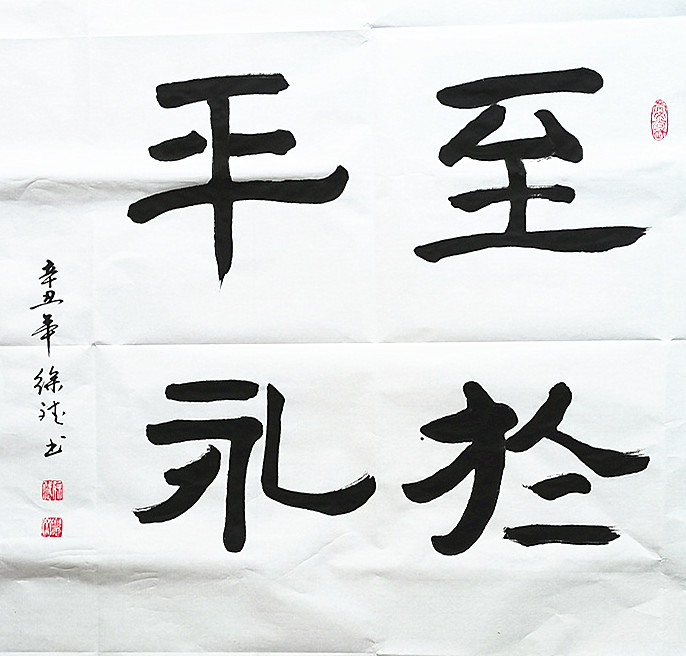 至於
平永
辛丑年徐书